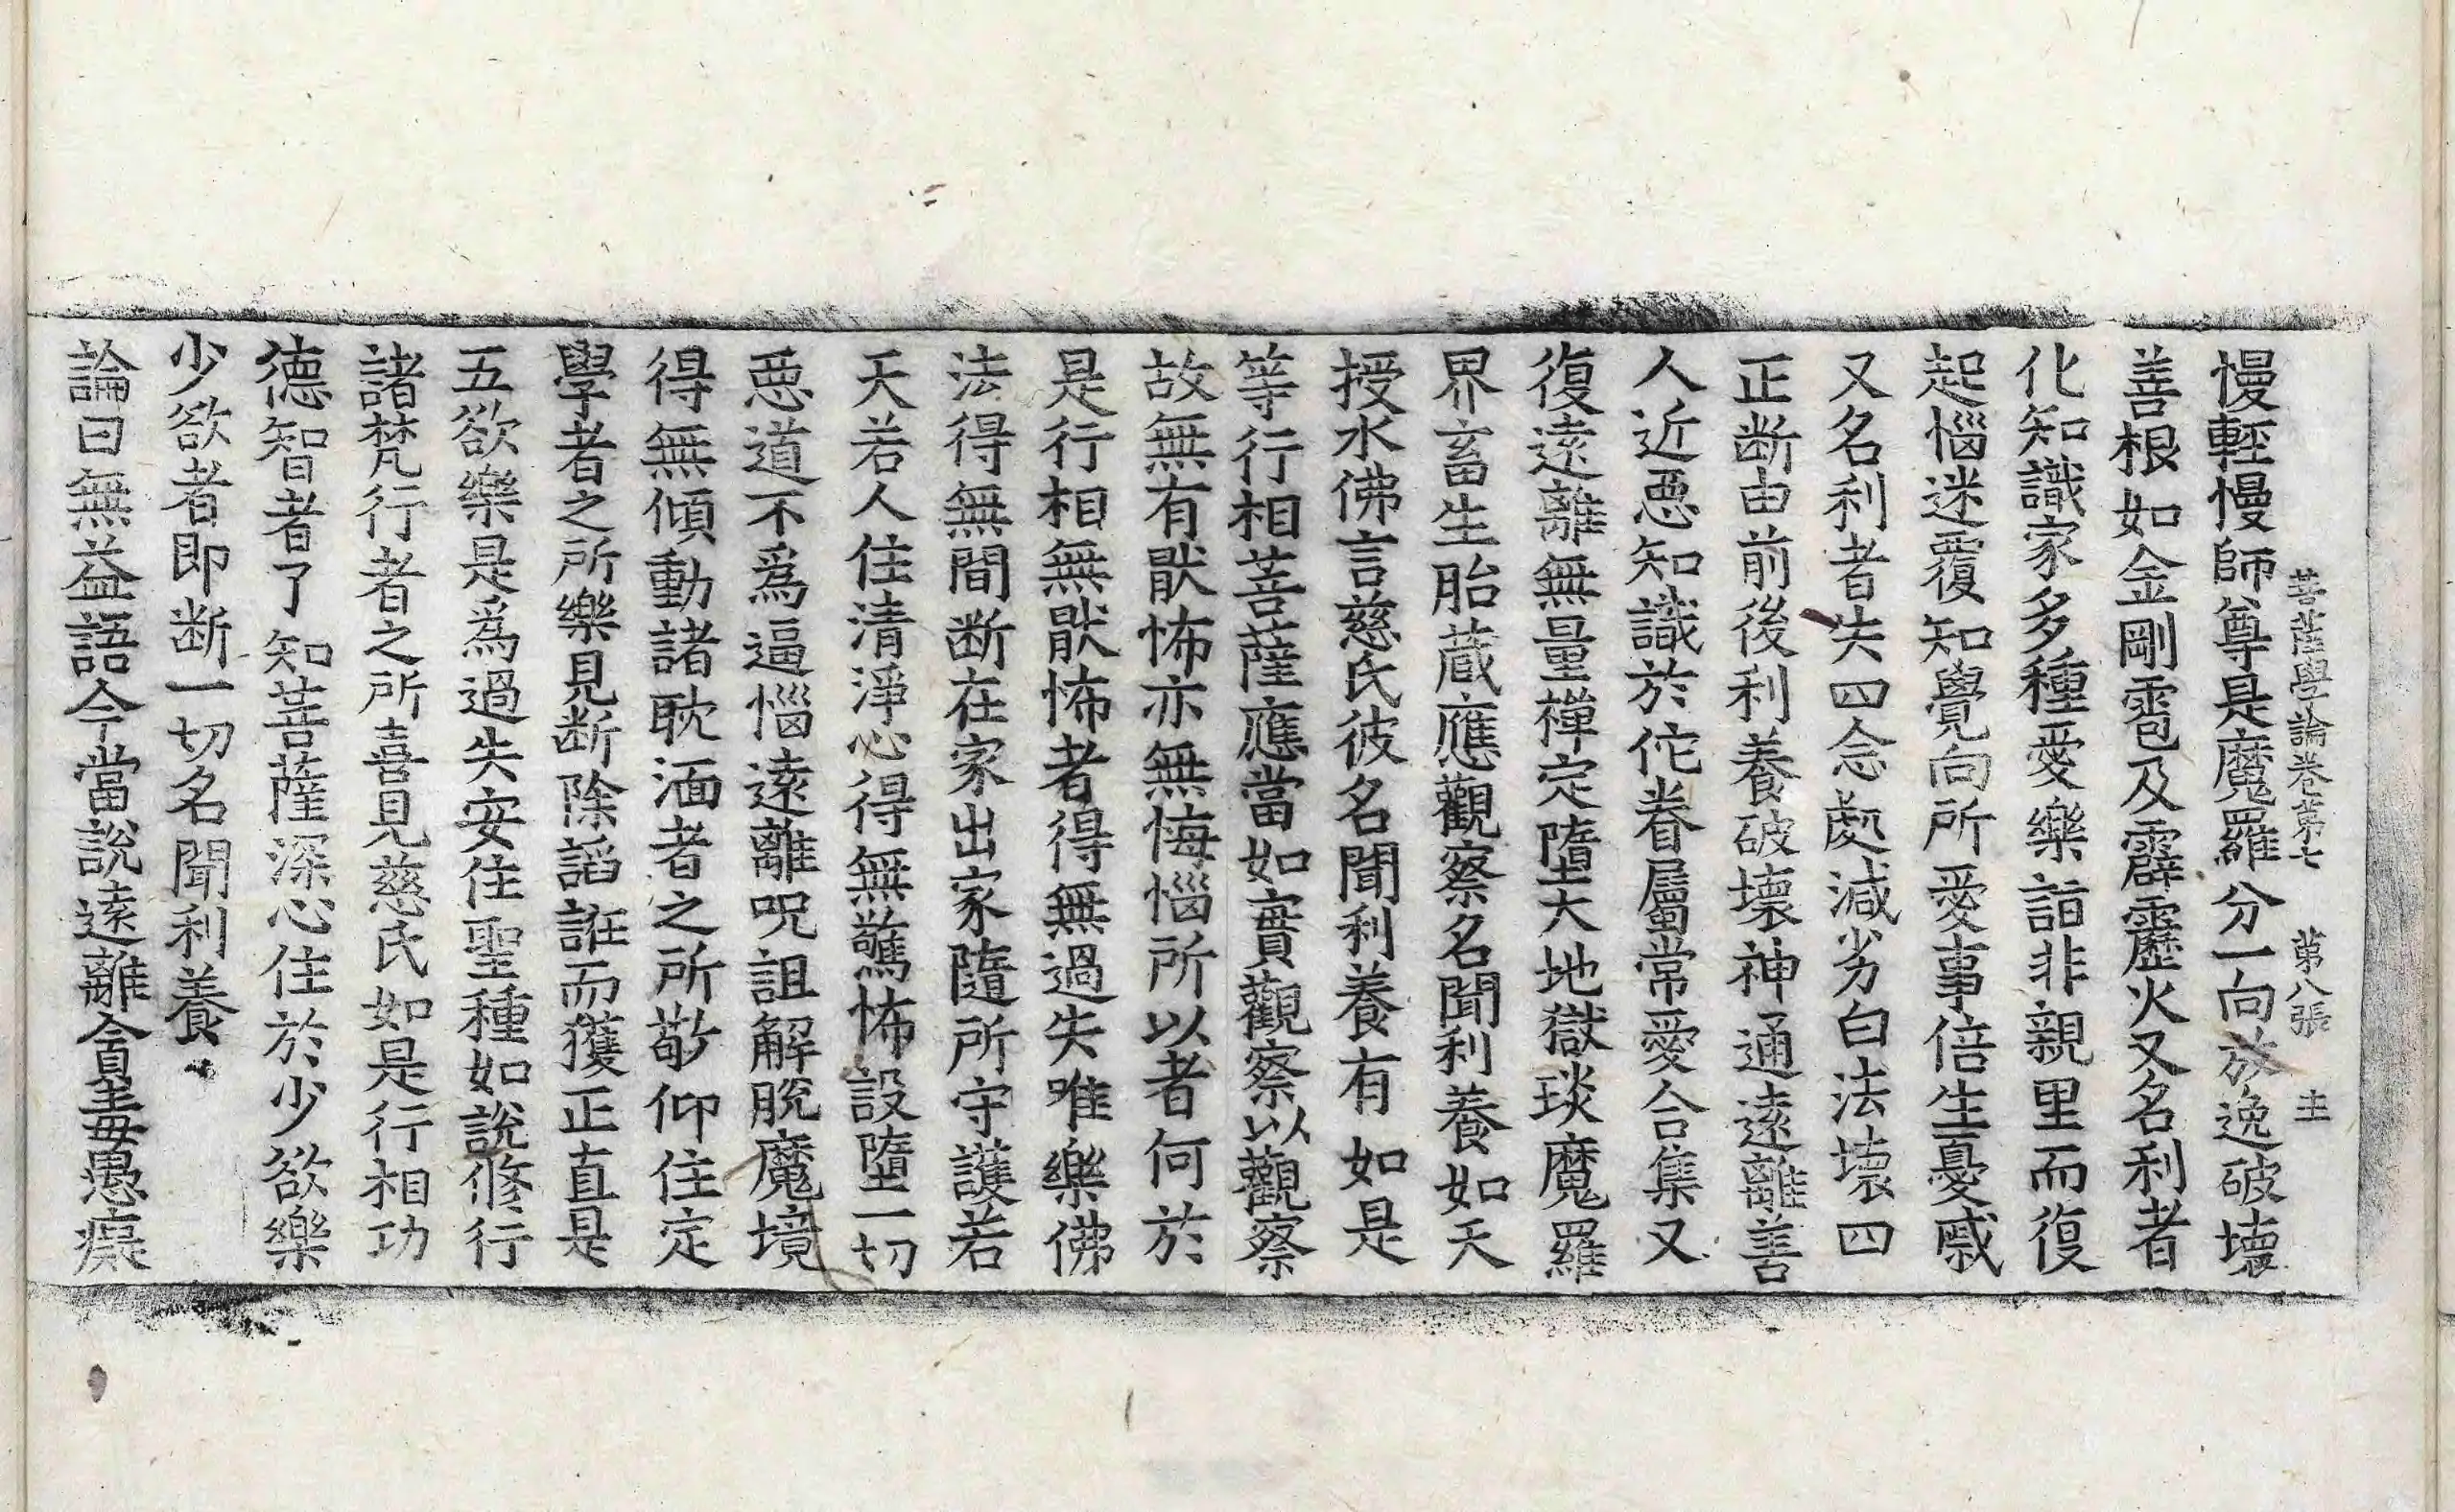 菩薩學論卷第七　第八張　圭
慢輕慢師尊是魔羅分一向放逸破壞
善根如金剛雹及霹靂火又名利者
化知識家多種愛樂詣非親里而復
起惱迷覆知覺向所愛事倍生憂慼
又名利者失四念處減劣白法壞四
正断由前後利養破壞神通遠離善
人近惡知識於佗眷屬常愛合集又
復遠離無量禪定墮大地獄琰魔羅
界畜生胎蔵應觀察名聞利養如天
授水佛言慈氏彼名聞利養有如是
等行相菩薩應當如實觀察以觀察
故無有猒怖亦無悔惱所以者何於
是行相無猒怖者得無過失唯樂佛
法得無間断在家出家隨所守護若
天若人住清淨心得無驚怖設墮一切
惡道不爲逼惱遠離呪詛解脫魔境
得無傾動諸耽湎者之所敬仰住定
學者之所樂見断除謟誑而獲正直是
五欲樂是爲過失安住聖種如說修行
諸梵行者之所喜見慈氏如是行相功
德智者了知菩薩深心住於少欲樂
少欲者即断一切名聞利養
論曰無益語今當說遠離貪恚愚癡